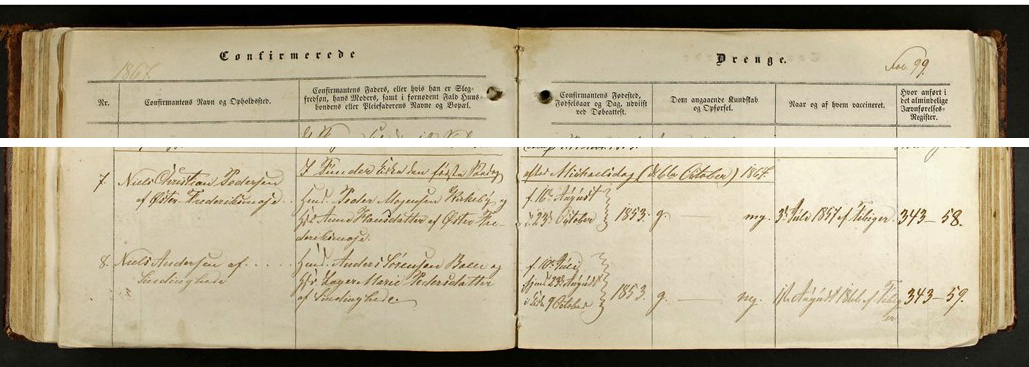 Confirmerede
Drenge.
1867.
Fol. 99.
Nr.
Confirmantens Navn og Opholdssted.
Confirmantens Faders, eller hvis han er Slegfredsøn, hans Moders, samt i fornødent Fald Huusbondens eller Pleiefaderens Navne og Bopæl.
Confirmantens Fødested, Fødselsaar og Dag, udviist ved Døbeattest.
Dom angaaende Kundskab og Opførsel.
Naar og af hvem vaccineret.
Hvor anført i det almindelige Jævnførelses-Register.
I Funder Kirke den første Søndag
efter Michaelisdag (d. 6te October) 1867.
7.
Niels Christian Pedersen
af Øster Frederiksmose.
Huusm. Peder Mogensen Kirkeby og
Hr. Anne Hansdatter af Øster Fre-
deriksmose.
f. 16de August
d. 23de October
1853.
g.
mg.
3de Juli 1857 af
343-58.
8.
Niels Andersen af
Sindinghede
Huusm. Anders Sørensen Balle og
Marie Pedersdatter
af Sindinghede
f. 10de Juli
hjmd. 23de August
i Kirke 9 October
1853.
g.
mg.
August 1866 af
343-59.